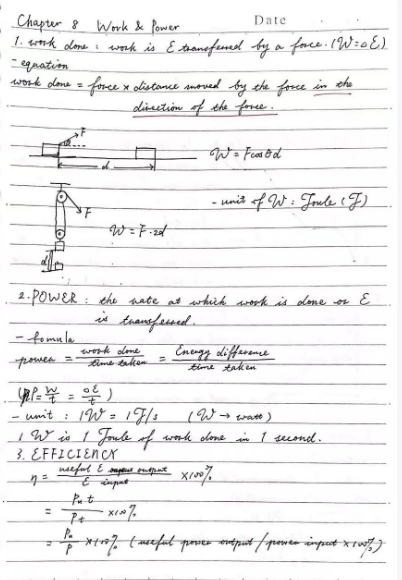 Date
Chapter 8 Work & Power
1. work done : work is E transferred by a force. (W=ΔE)
- equation
work done = force x distance moved by the force in the
direction of the force.
F
θ
d
W = Fcosθd
F
- unit of W : Joule (J)
W = F·2d
d
2. POWER : the rate at which work is done or E
is transferred.
- fomula
power = work done / time taken = Energy difference / time taken
(P = W/t = ΔE/t)
- unit : 1W = 1J/s (W → watt)
1 W is 1 Joule of work done in 1 second.
3. EFFICIENCY
η = useful E output / E input x100%
= Pu t / Pt x100%
= Pu / P x100% (useful power output / power input x100%)